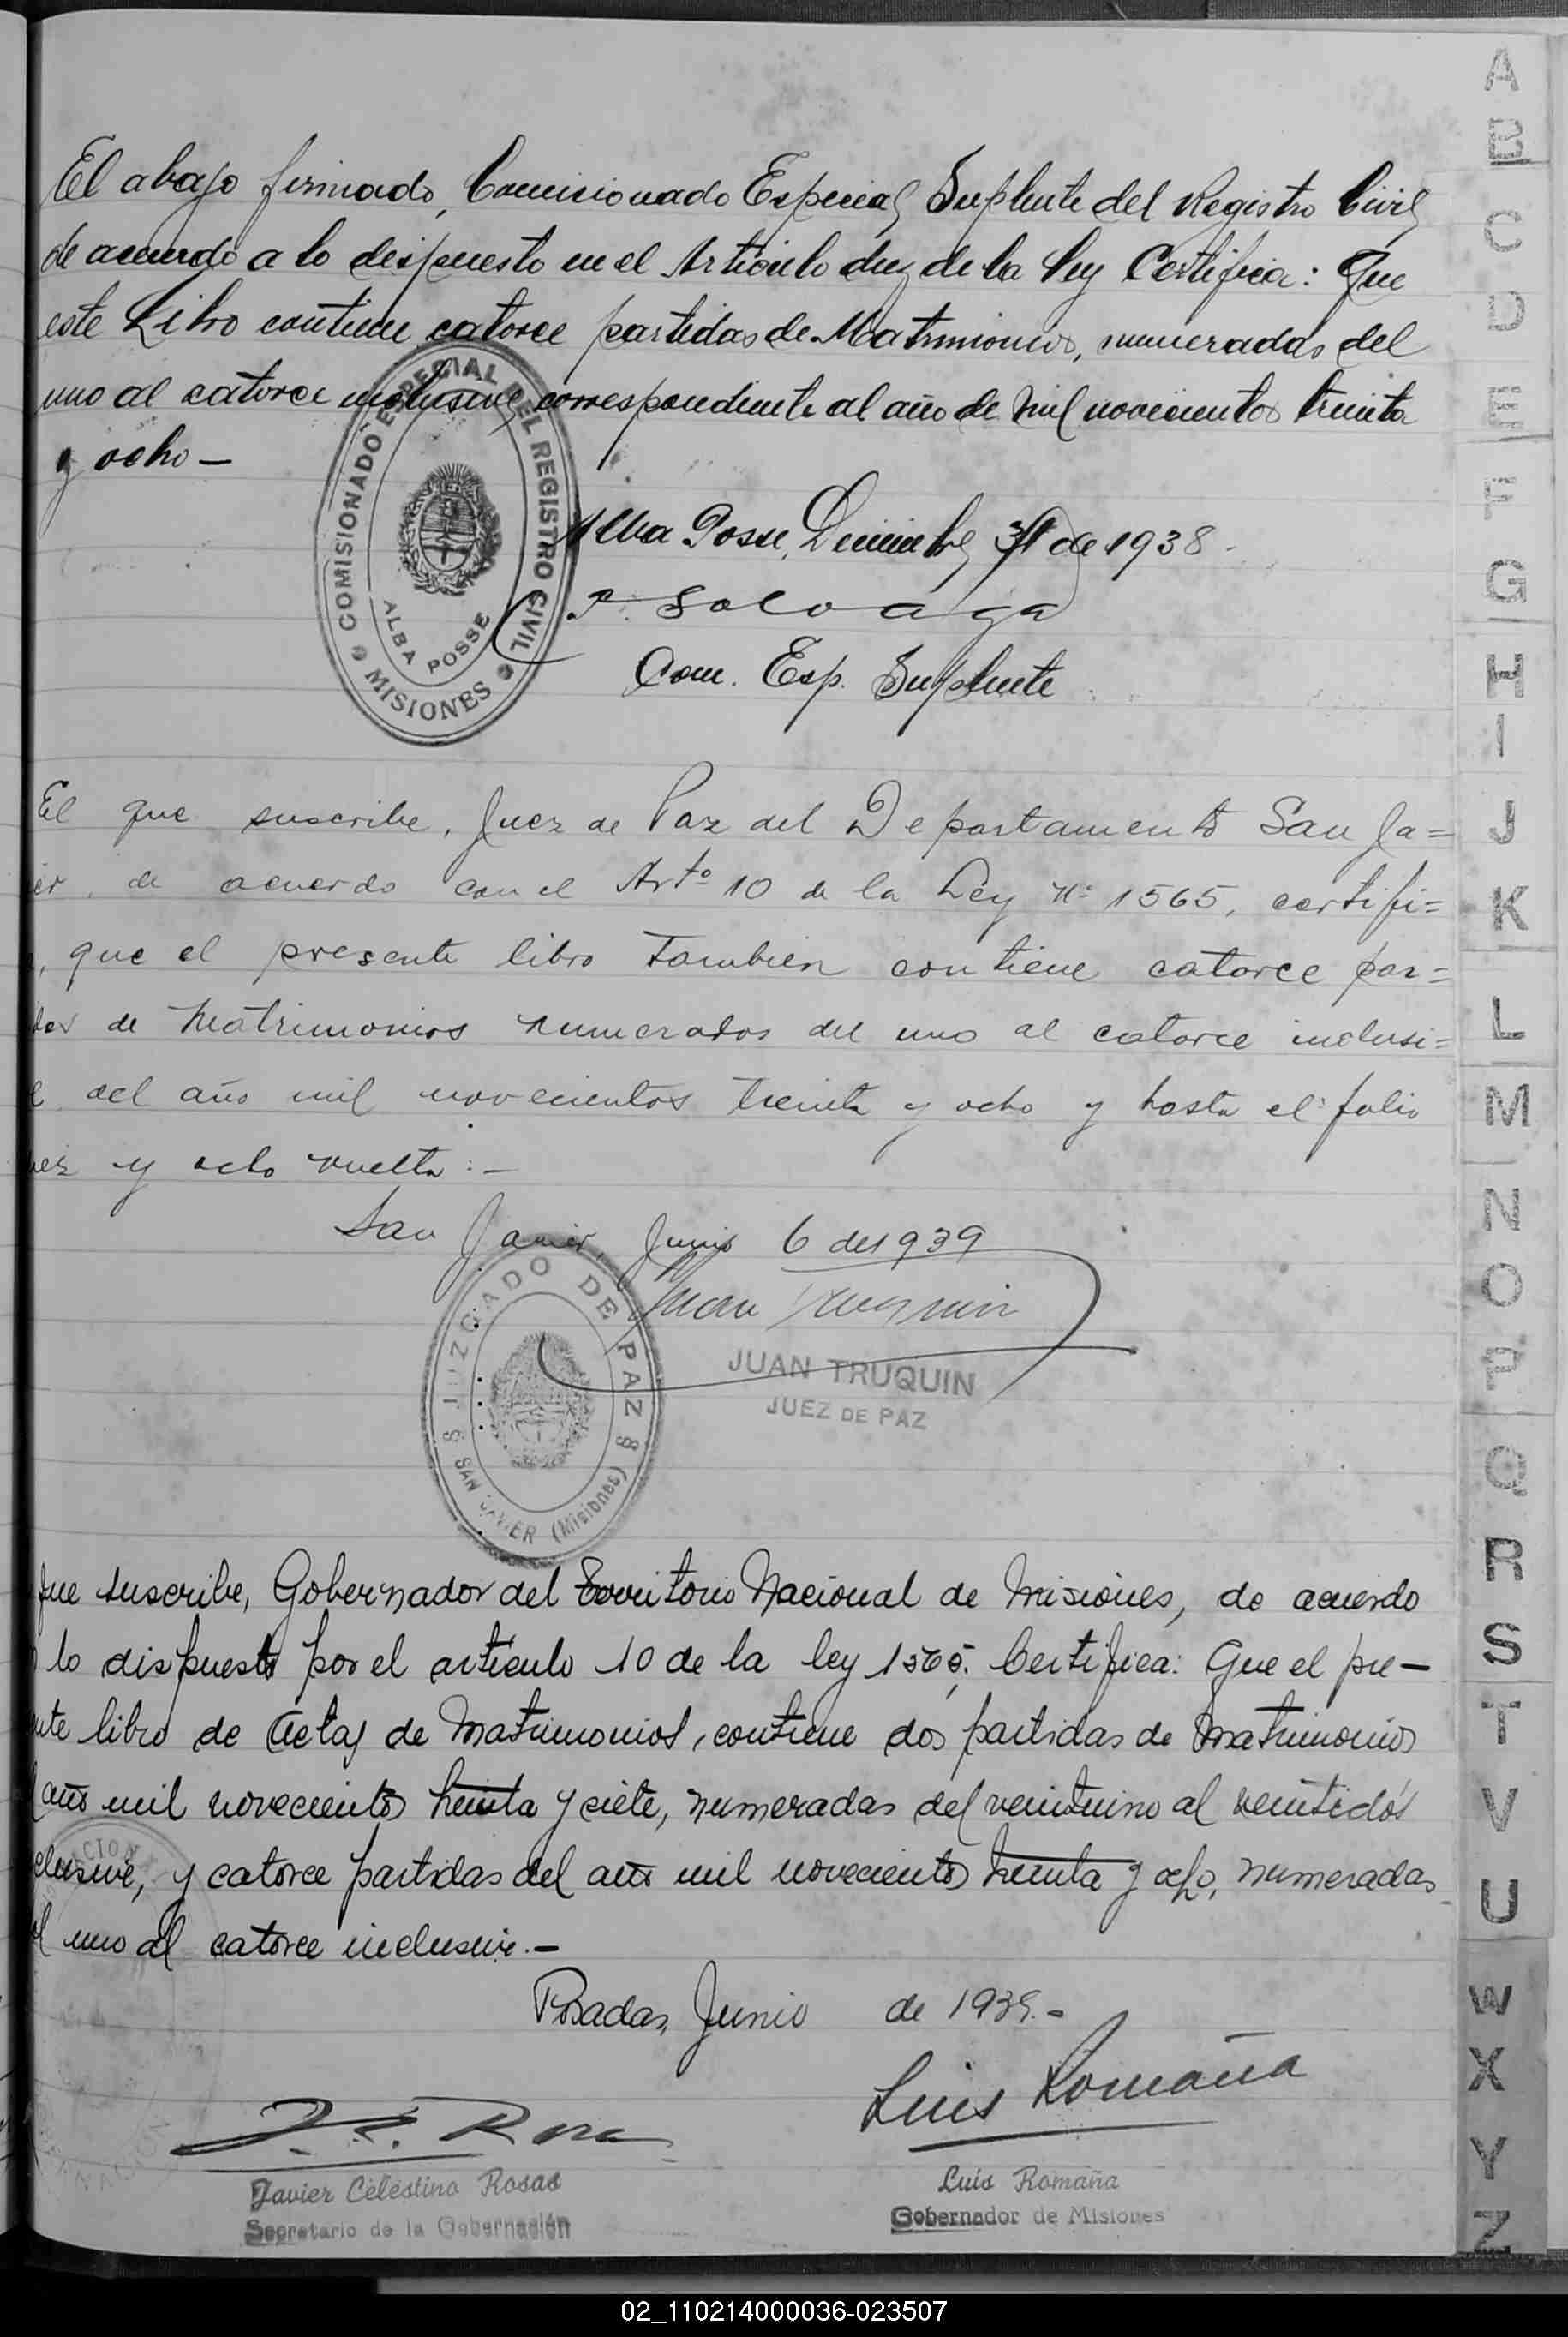 El abajo firmado, Comisionado Especial Suplente del Registro Civil
de acuerdo a lo dispuesto en el Articulo diez de la Ley Certifica: Que
este Libro contiene catorce partidas de Matrimonios, numeradas del
uno al catorce inclusive correspondiente al año de mil novecientos treinta
y ocho —
Alba Posse, Diciembre 31 de 1938
P. Soloaga
Com. Esp. Suplente
COMISIONADO ESPECIAL DEL REGISTRO CIVIL
ALBA POSSE
MISIONES
El que suscribe, Juez de Paz del Departamento San Ja=
er, de acuerdo con el Arto 10 de la Ley No 1565, certifi=
, que el presente libro tambien contiene catorce par=
das de Matrimonios numerados del uno al catorce inclusi=
e del año mil novecientos treinta y ocho y hasta el folio
iez y ocho vuelta:—
San Javier, Junio 6 de 1939
Juan Truquin
JUAN TRUQUIN
JUEZ DE PAZ
JUZGADO DE PAZ
SAN JAVIER (Misiones)
que suscribe, Gobernador del Territorio Nacional de Misiones, de acuerdo
lo dispuesto por el artículo 10 de la ley 1565; Certifica: Que el pre—
nte libro de Actas de Matrimonios, contiene dos partidas de Matrimonios
año mil novecientos treinta y siete, numeradas del veintiuno al veintidós
clusive, y catorce partidas del año mil novecientos treinta y ocho, numeradas
l uno al catorce inclusive.—
Posadas, Junio de 1939.-
Luis Romaña
Javier Celestino Rosas
Secretario de la Gobernación
Luis Romaña
Gobernador de Misiones
A
B
C
D
E
F
G
H
I
J
K
L
M
N
O
P
Q
R
S
T
V
U
W
X
Y
Z
02_110214000036-023507